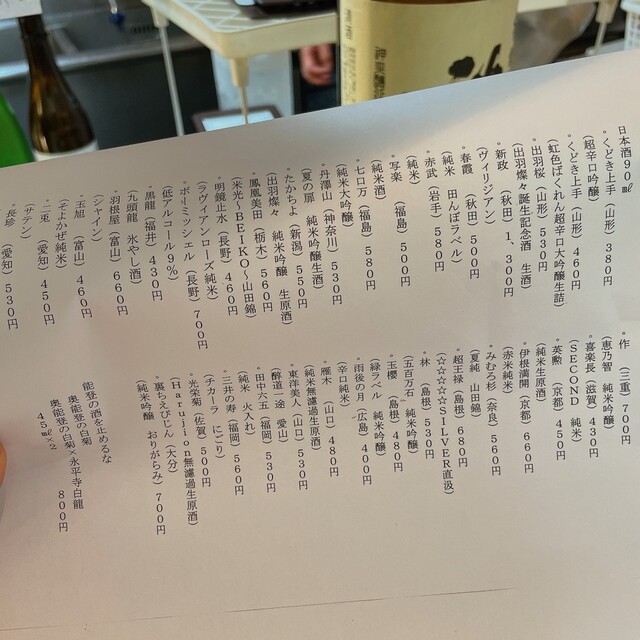 日本酒90㎖
*くどき上手（山形）380円
（超辛口吟醸）
*くどき上手（山形）460円
（虹色ばくれん超辛口大吟醸生詰）
*出羽桜（山形）530円
（出羽燦々誕生記念酒　生酒）
*新政　（秋田）1、300円
（ヴィリジアン）
*春霞　（秋田）500円
（純米　田んぼラベル）
*赤武（岩手）580円
（純米）
*写楽　（福島）500円
（純米酒）
*七ロ万（福島）580円
（純米大吟醸）
*丹澤山（神奈川）530円
（夏の扉　純米吟醸生酒）
*たかちよ（新潟）550円
（出羽燦々　純米吟醸　生原酒）
*鳳凰美田（栃木）560円
（米光～BEIKO～山田錦）
*明鏡止水（長野）460円
（ラヴィアンローズ純米）
*ボー・ミッシェル（長野）700円
（低アルコール9%）
*黒龍（福井）430円
（九頭龍　氷やし酒）
*羽根屋（富山）660円
（シャイン）
*玉旭　（富山）460円
（そよかぜ純米）
*二兎　（愛知）450円
（サテン）
*長珍　（愛知）530円
*作　（三重）700円
（恵乃智　純米吟醸）
*喜楽長（滋賀）430円
（SECOND　純米）
*英勲　（京都）450円
（純米生原酒）
*伊根満開（京都）660円
（赤米純米）
*みむろ杉（奈良）560円
（夏純　山田錦）
*超王祿（島根）680円
（☆☆☆☆☆SILVER直汲）
*林　（島根）530円
（五百万石　純米吟醸）
*玉櫻　（島根）480円
（緑ラベル　純米吟醸）
*雨後の月（広島）400円
（辛口純米）
*雁木　（山口）480円
（純米無濾過生原酒）
*東洋美人（山口）530円
（醇道一途　愛山）
*田中六五（福岡）530円
（純米　火入れ）
*三井の寿（福岡）560円
（チカーラ　にごり）
*光栄菊（佐賀）500円
（Harujion無濾過生原酒）
*裏ちえびじん（大分）
（純米吟醸　おりがらみ）700円
能登の酒を止めるな
奥能登の白菊
奥能登の白菊×永平寺白龍
45㎖×2　800円